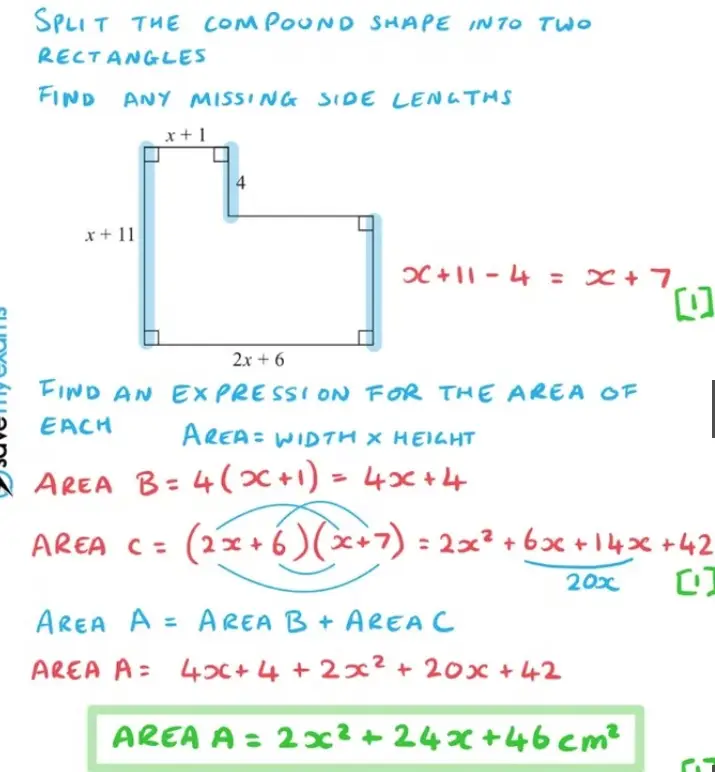 SPLIT THE COMPOUND SHAPE INTO TWO
RECTANGLES
FIND ANY MISSING SIDE LENGTHS
x + 1
4
x + 11
x+11-4 = x+7
[1]
2x + 6
FIND AN EXPRESSION FOR THE AREA OF
EACH AREA = WIDTH X HEIGHT
AREA B = 4(x+1) = 4x+4
AREA C = (2x+6)(x+7) = 2x² + 6x + 14x + 42
20x
[1]
AREA A = AREA B + AREA C
AREA A = 4x+4 + 2x² + 20x + 42
AREA A = 2x² + 24x + 46 cm²